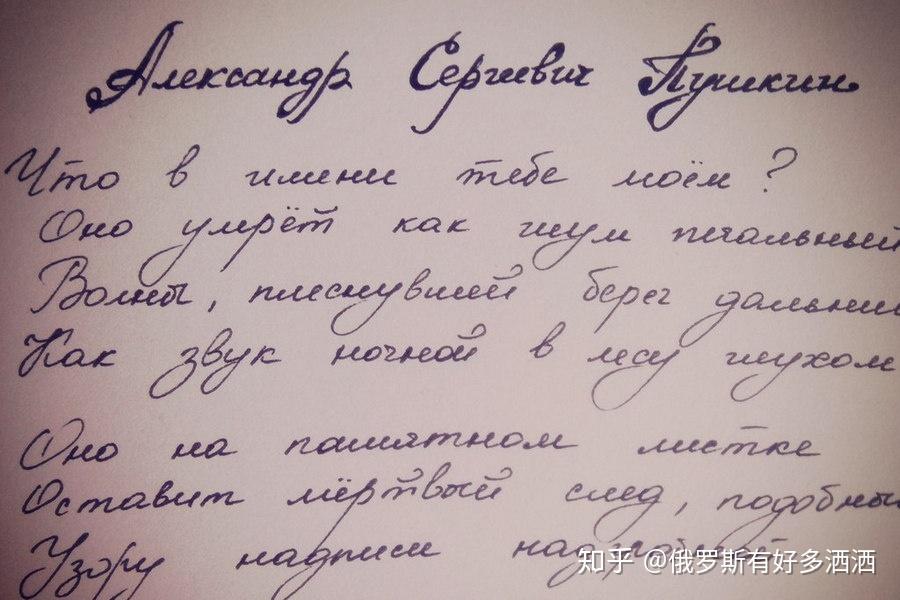 Александр Сергеевич Пушкин
Что в имени тебе моём?
Оно умрёт как шум печальный
Волны, плеснувшей берег дальни
Как звук ночной в лесу глухом
Оно на памятном листке
Оставит мёртвый след, подобны
Узору надписи надгробной
知乎 @俄罗斯有好多洒洒